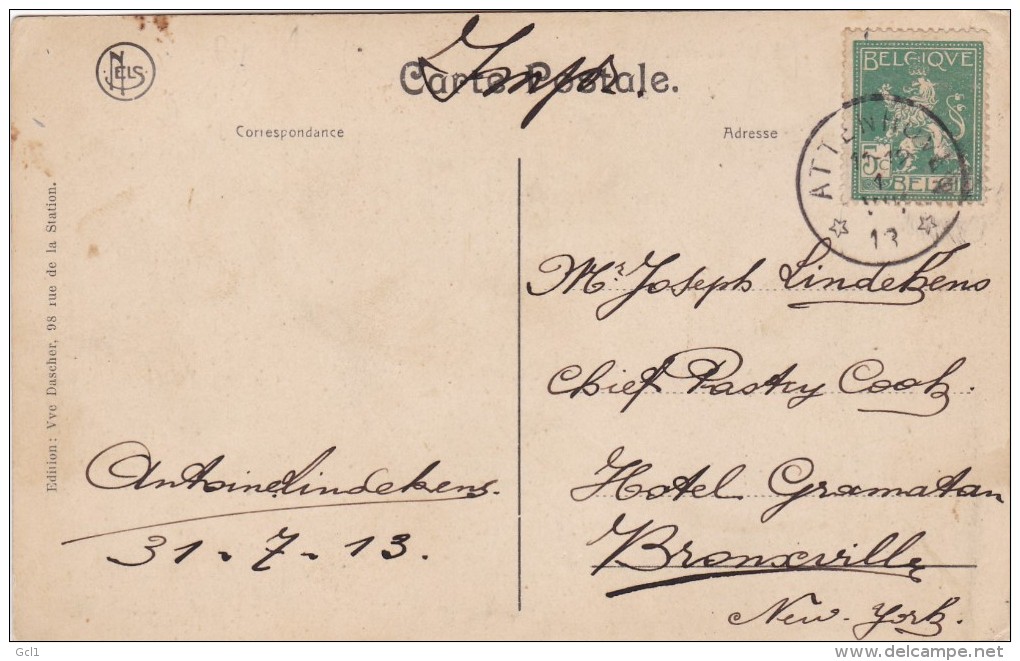 NELS
Carte Postale.
Correspondance
Adresse
BELGIQUE
5c
BELGIË
13
Edition: Vve Dascher, 98 rue de la Station.
Mr. Joseph Lindekens
Chief Pastry Cook.
Hotel Gramatan
Bronxville
New-York.
Antoine Lindekens.
31-7-13.
Gcl1
delcampe.net